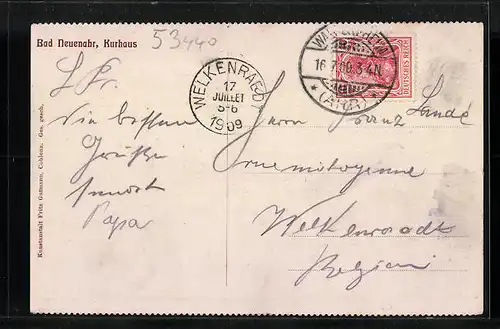 Bad Neuenahr, Kurhaus
53440
WELKENRAEDT
17
JUILLET
5-6
1909
16.7.09.3-4N.
* (AHR) *
DEUTSCHES REICH
L Fr.
Die besten
Grüße
sendet
Papa
Herrn Franz Landé
Welkenraedt
Belgien
Kunstanstalt Fritz Gutmann, Coblenz. Ges. gesch.